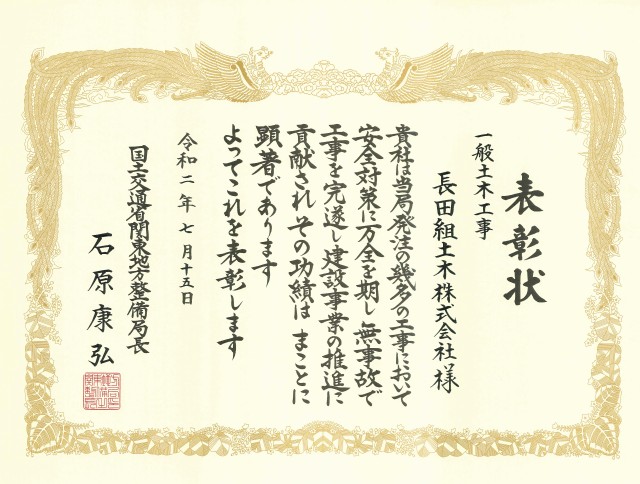 表彰状
一般土木工事
長田組土木株式会社様
貴社は当局発注の幾多の工事において
安全対策に万全を期し無事故で
工事を完遂し建設事業の推進に
貢献されその功績はまことに
顕著であります
よってこれを表彰します
令和二年七月十五日
国土交通省関東地方整備局長
石原康弘